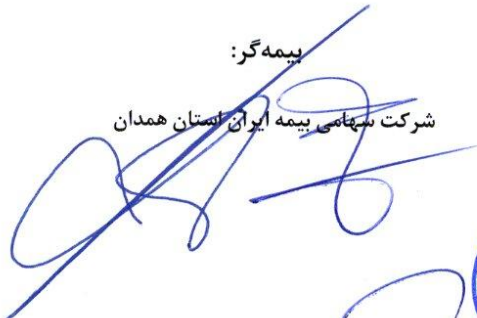 بیمه‌گر:
شرکت سهامی بیمه ایران استان همدان